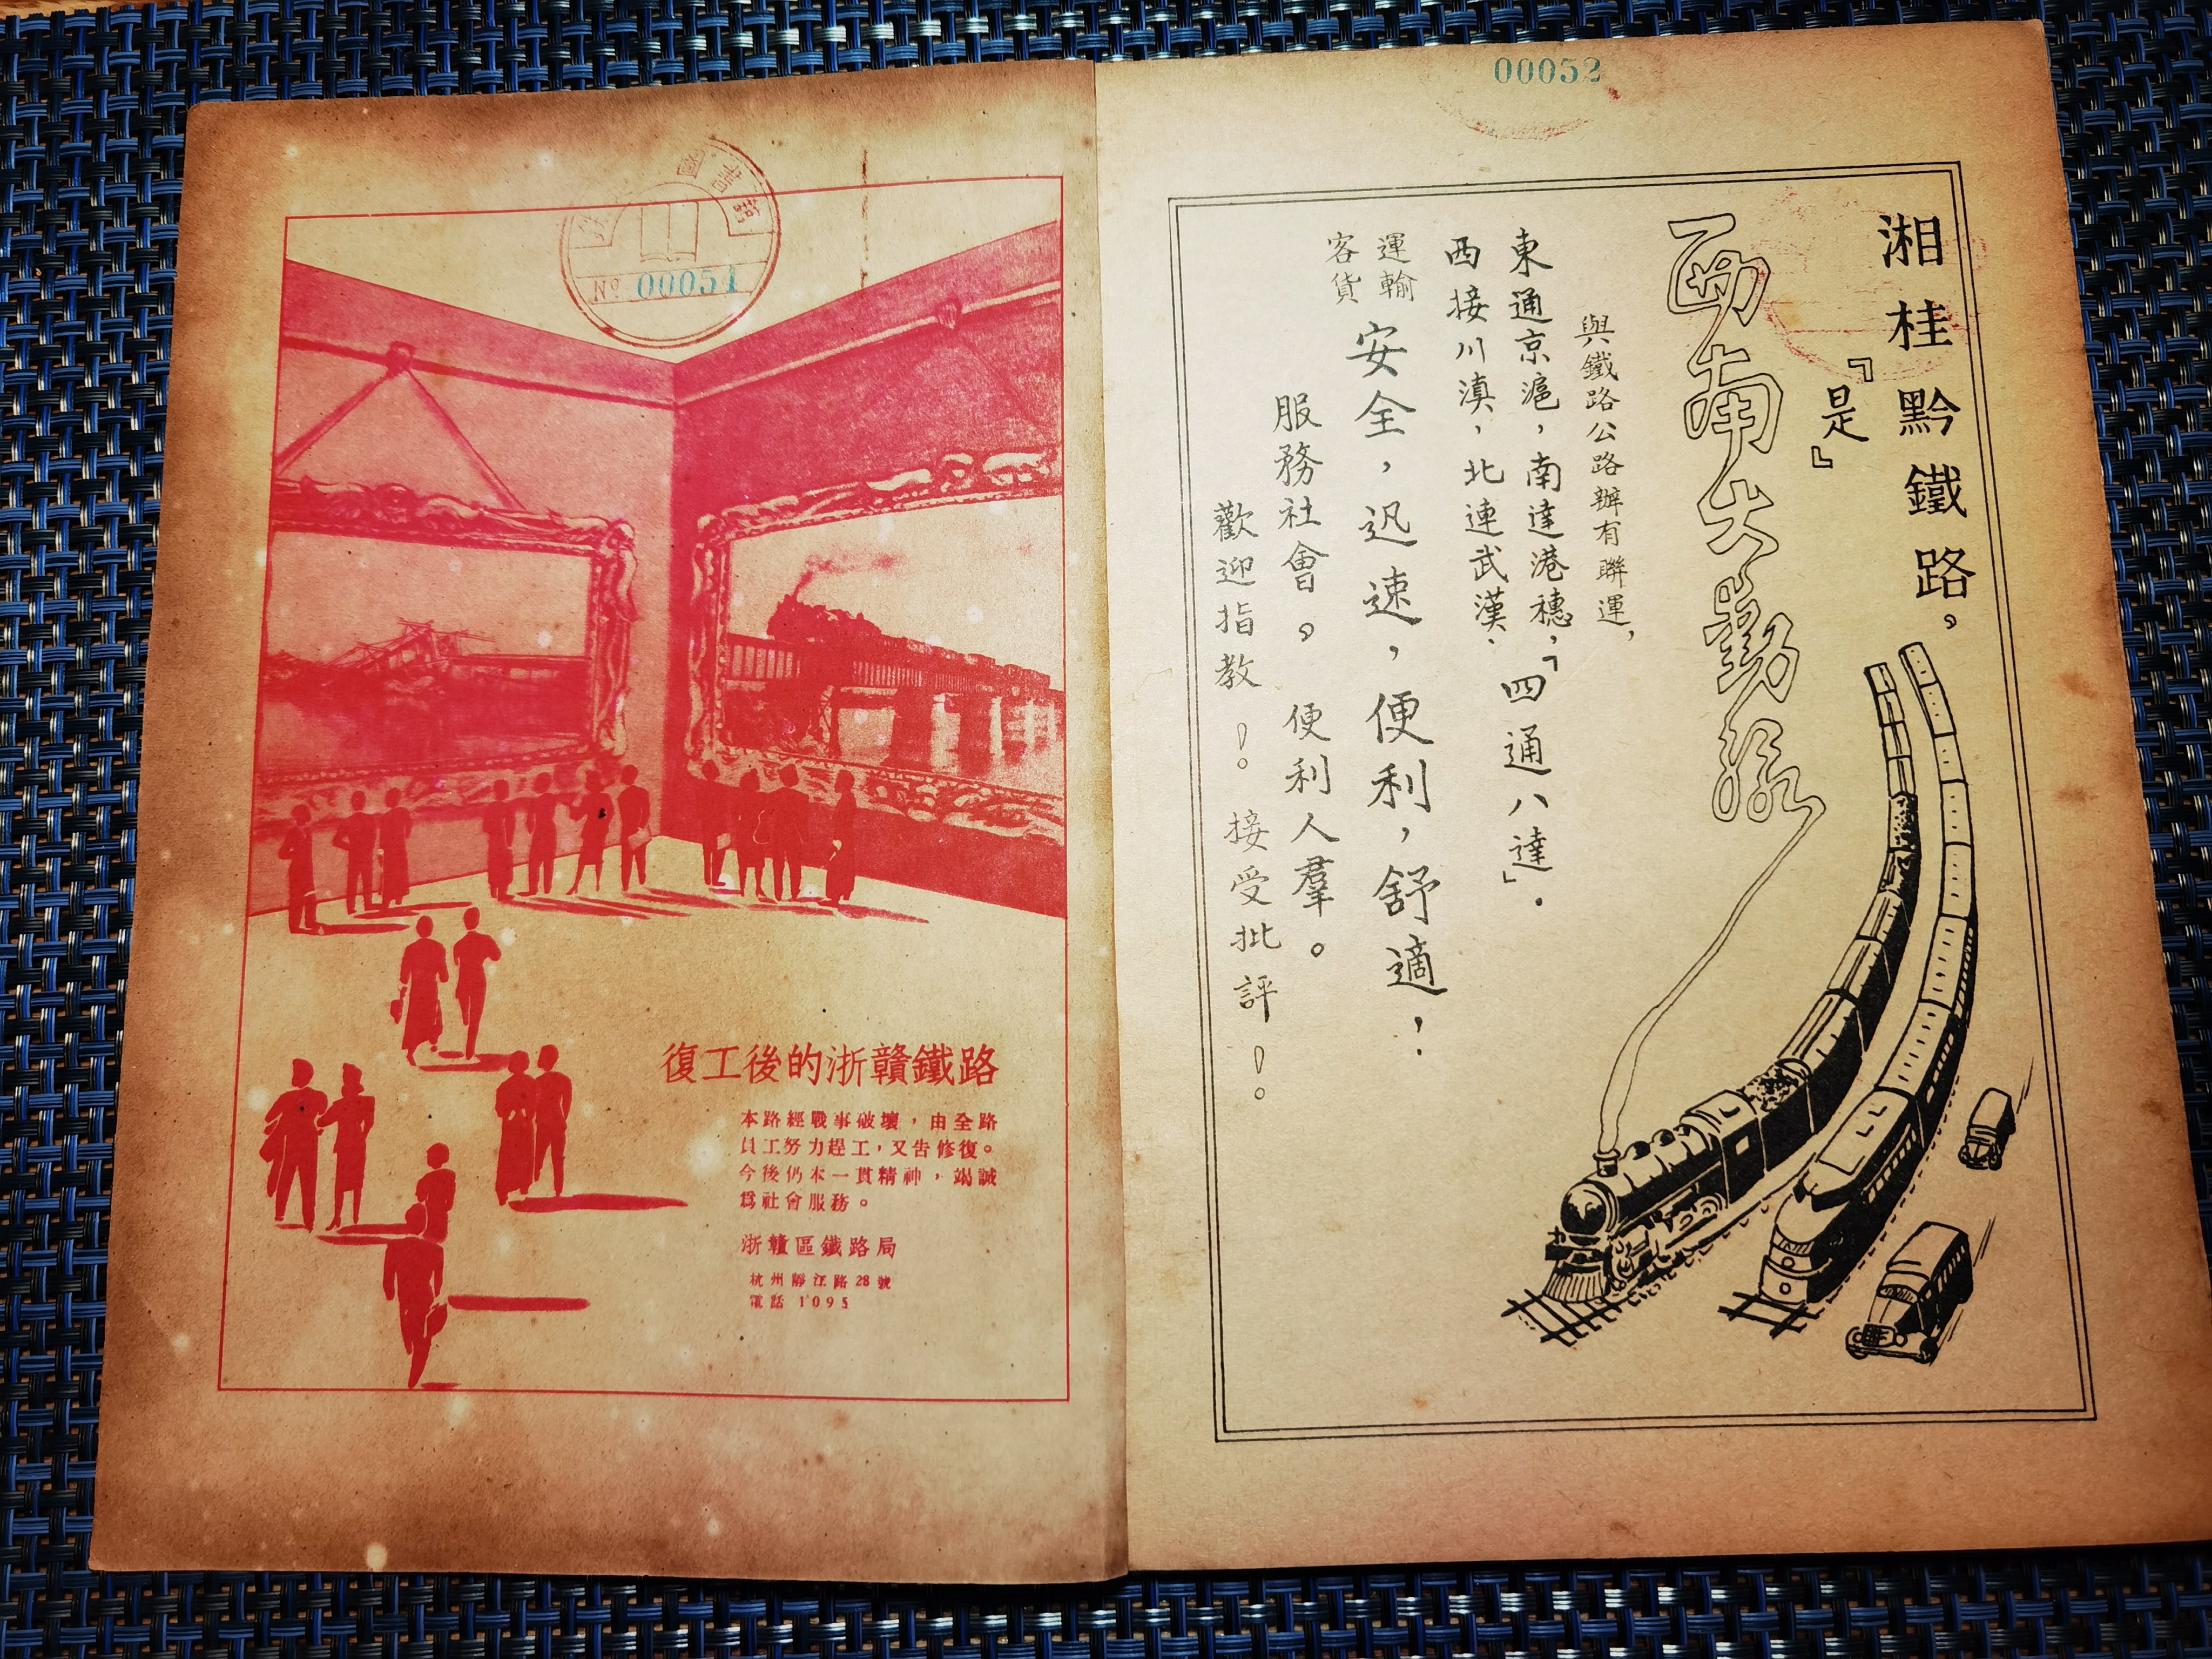 00052
湘桂黔鐵路。
『是』
西南大動脈
與鐵路公路辦有聯運，
東通京滬，南達港穗，「四通八達」．
西接川滇，北連武漢．
運輸
客貨
安全，迅速，便利，舒適，．
服務社會。便利人羣。
歡迎指教！。接受批評！。
圖
No 00051
復工後的浙贛鐵路
本路經戰事破壞，由全路
員工努力趕工，又告修復。
今後仍本一貫精神，竭誠
爲社會服務。
浙贛區鐵路局
杭州靜江路28號
電話 1095